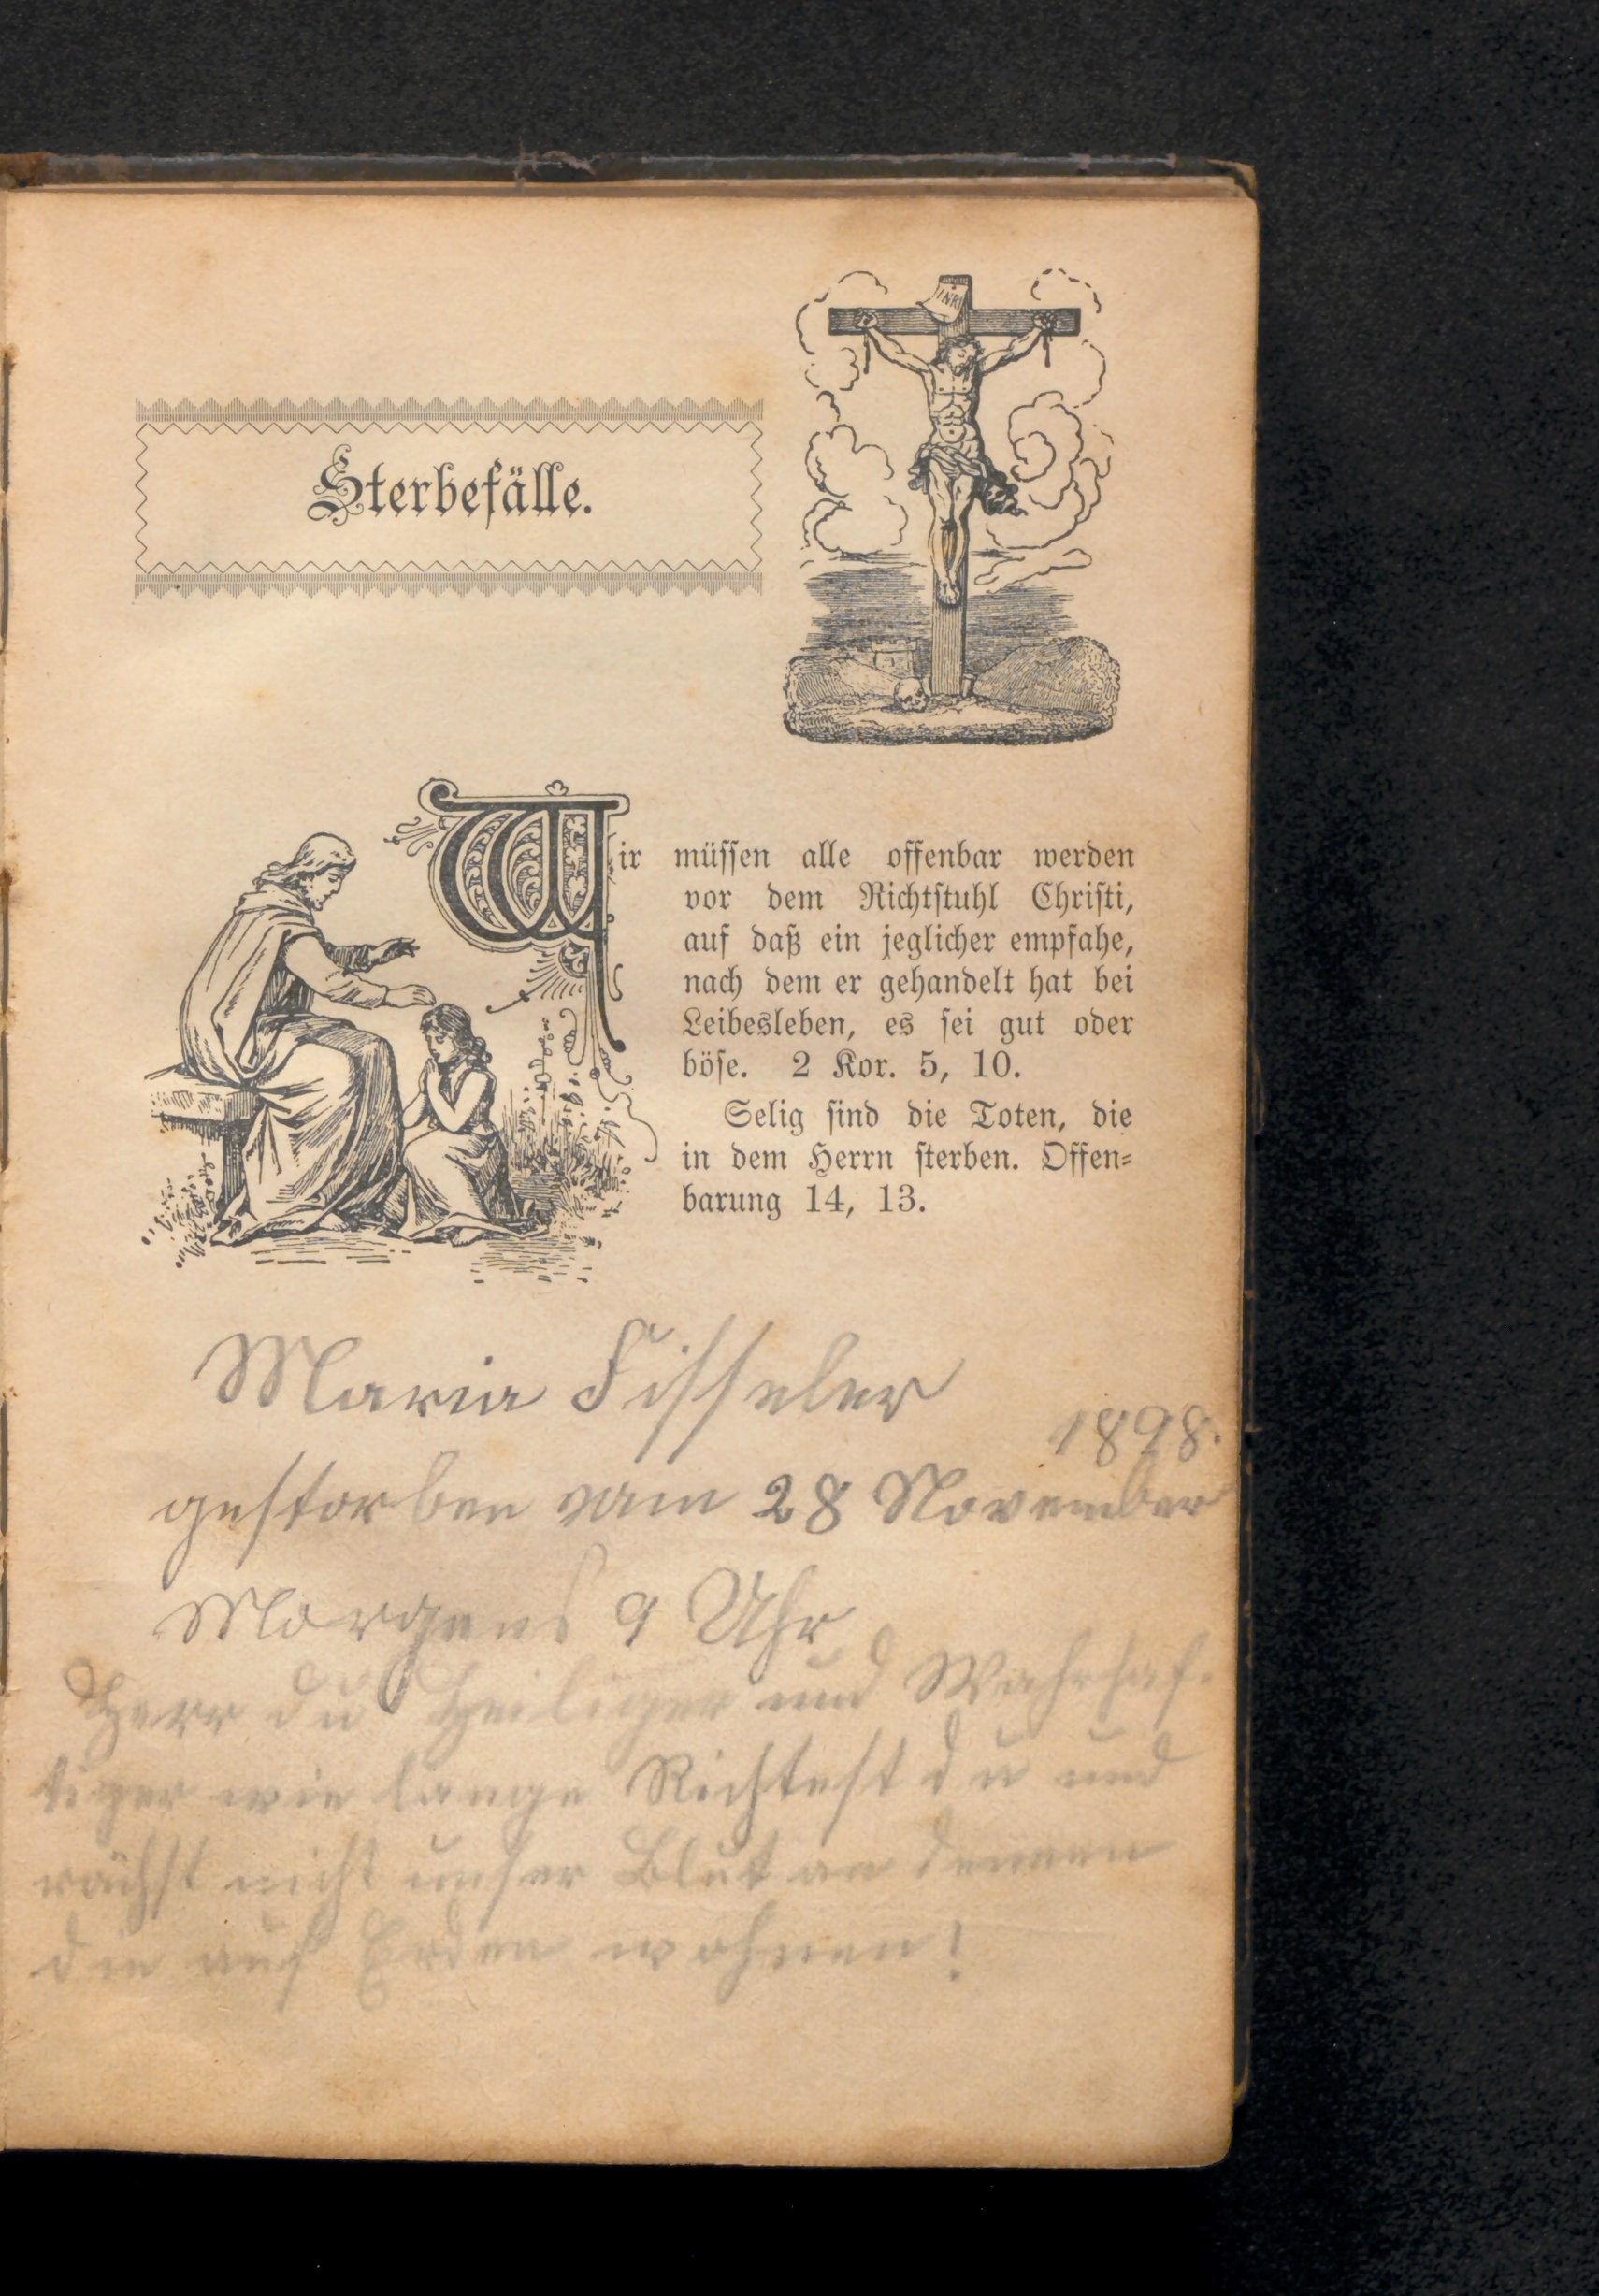 INRI
Sterbefälle.
Wir müssen alle offenbar werden
vor dem Richtstuhl Christi,
auf daß ein jeglicher empfahe,
nach dem er gehandelt hat bei
Leibesleben, es sei gut oder
böse. 2 Kor. 5, 10.
Selig sind die Toten, die
in dem Herrn sterben. Offen-
barung 14, 13.
Maria Fisseler
1898.
gestorben vom 28 November
Morgens 9 Uhr
Herr du Heiliger und Wahrhaf-
tiger wie lange Richtest du und
rächst nicht unser Blut an dennen
die auf Erden wohnen!